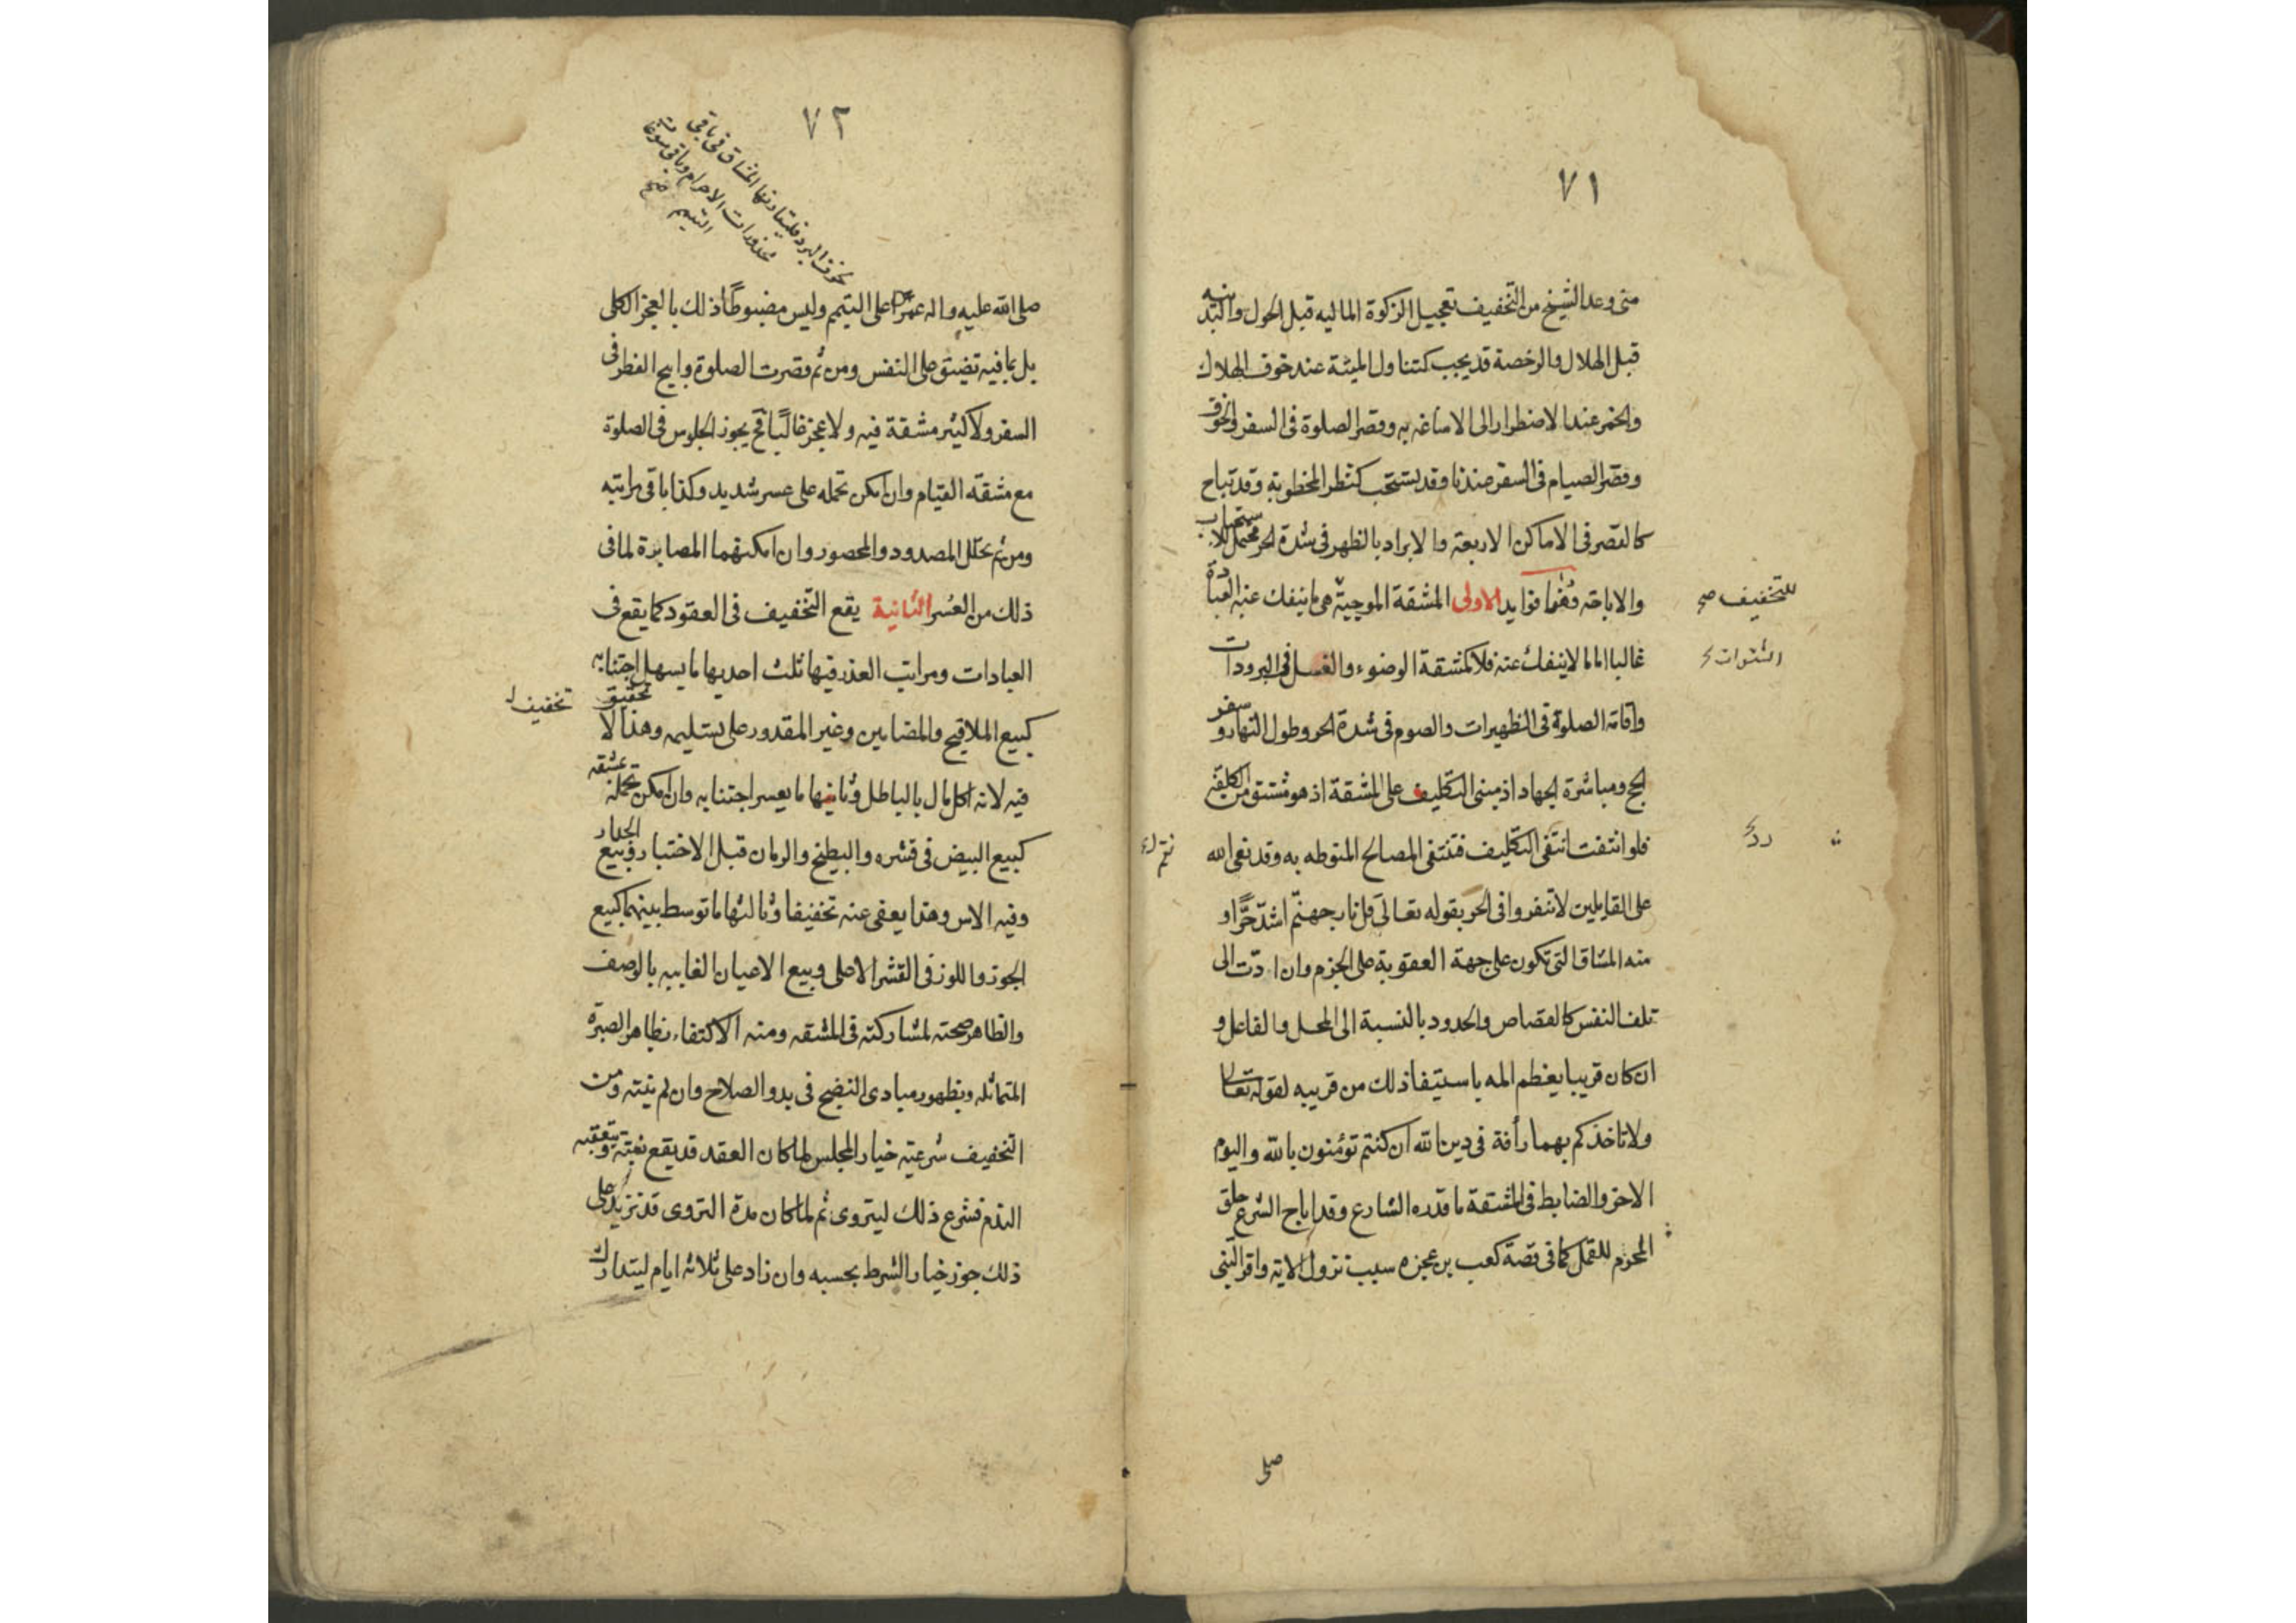 ٧١
منى وعد الشيخ من التخفيف تعجيل الزكوة الماليه قبل الحول والبدنيه
قبل الهلال والرخصة قد يجب كتناول الميتة عند خوف الهلاك
والخمر عند الاضطرار الى الاساغه به وقصر الصلوة فى السفر والخوف
وقصر الصيام فى السفر عندنا وقد يستحب كنظر المخطوبة وقد تباح
كالقصر فى الاماكن الاربعة والابراد بالظهر فى شدة الحر محتمل الاستحباب
والاباحة وهنا فوايد الاولى المشقة الموجبة هى ما ينفك عنه العبادة
للتخفيف صح
غالبا اما ما لا ينفك عنه فلا كمشقة الوضوء والغسل فى البرودات
السبرات
واقامة الصلوة فى الظهيرات والصوم فى شدة الحر وطول النهار وسفر
الحج ومباشرة الجهاد اذ مبنى التكليف على المشقة اذ هو مشتق من الكلفة
فلو انتفت انتفى التكليف فتنتفى المصالح المنوطه به وقد نعى الله
رد
على القايلين لا تنفروا فى الحر بقوله تعالى قل نار جهنم اشد حرا و
منه المشاق التى تكون على جهة العقوبة على الجرم وان ادت الى
تلف النفس كالقصاص والحدود بالنسبة الى المحل والفاعل و
ان كان قريبا يعظم المه باستيفا ذلك من قريبه لقوله تعالى
ولا تاخذكم بهما رأفة فى دين الله ان كنتم تؤمنون بالله واليوم
الاخر والضابط فى المشقة ما قدره الشارع وقد اباح الشرع حلق
المحرم للقمل كما فى قصة كعب بن عجره سبب نزول الاية واقر النبى
صلى
٧٢
بخوف البرد فليقاربها المشاق فى باقى
محذورات الاحرام وباقى مسوغات
التيمم صح
صلى الله عليه واله عمرا على التيمم وليس مضبوطا ذلك بالعجز الكلى
بل بما فيه تضيق على النفس ومن ثم قصرت الصلوة وابيح الفطر فى
السفر ولا كثير مشقة فيه ولا عجز غالبا فح يجوز الجلوس فى الصلوة
مع مشقة القيام وان امكن تحمله على عسر شديد وكذا باقى مراتبه
ومن ثم تحلل المصدود والمحصور وان امكنهما المصابرة لما فى
ذلك من العسر الثانية يقع التخفيف فى العقود كما يقع فى
العبادات ومراتب العذر فيها ثلث احديها ما يسهل اجتنابه
كبيع الملاقيح والمضامين وغير المقدور على تسليمه وهذا لا تحقيق
تخفيف
فيه لانه اكل مال بالباطل وثانيها ما يعسر اجتنابه وان امكن تحمله بمشقه
كبيع البيض فى قشره والبطيخ والرمان قبل الاختبار وبيع الجدار
وفيه الاس وهذا يعفى عنه تخفيفا وثالثها ما توسط بينهما كبيع
الجوز واللوز فى القشر الاعلى وبيع الاعيان الغايبه بالوصف
والظاهر صحته لمشاركته فى المشقه ومنه الاكتفاء بظاهر الصبرة
المتماثله وبظهور مبادى النضج فى بدو الصلاح وان لم ينته ومن
التخفيف شرعية خيار المجلس لما كان العقد قد يقع بغتة وتعقبه
الندم فشرع ذلك ليتروى ثم لما كان مدة التروى قد تزيد على
ذلك جوز خيار الشرط بحسبه وان زاد على ثلاثة ايام ليتدارك